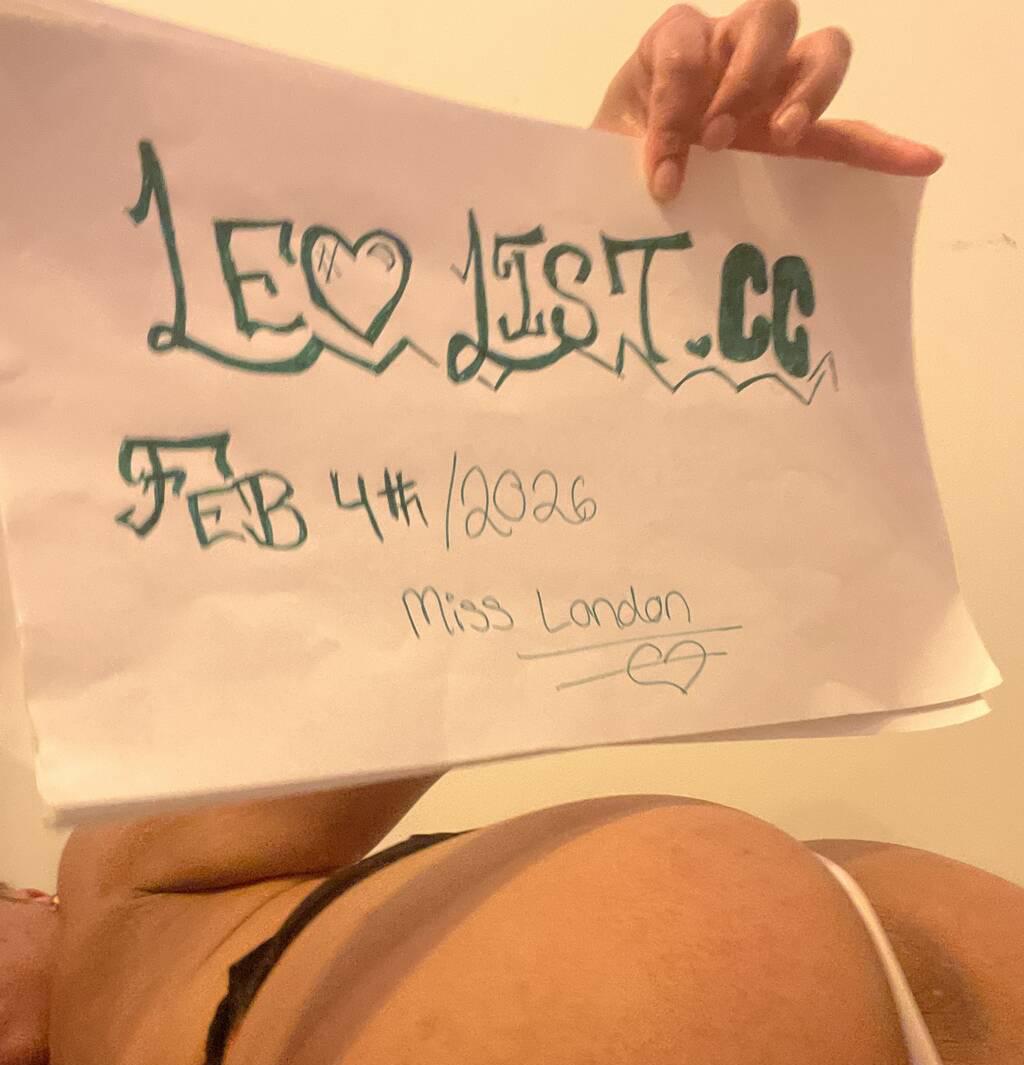 LEO LIST.CC
FEB 4th/2026
Miss London